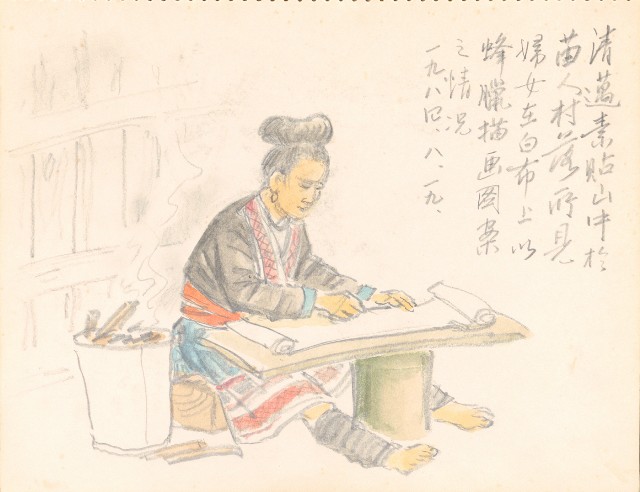 清邁素貼山中於
苗人村落所見
婦女在白布上以
蜂臘描画图案
之情况
一九八〇、八、一九、